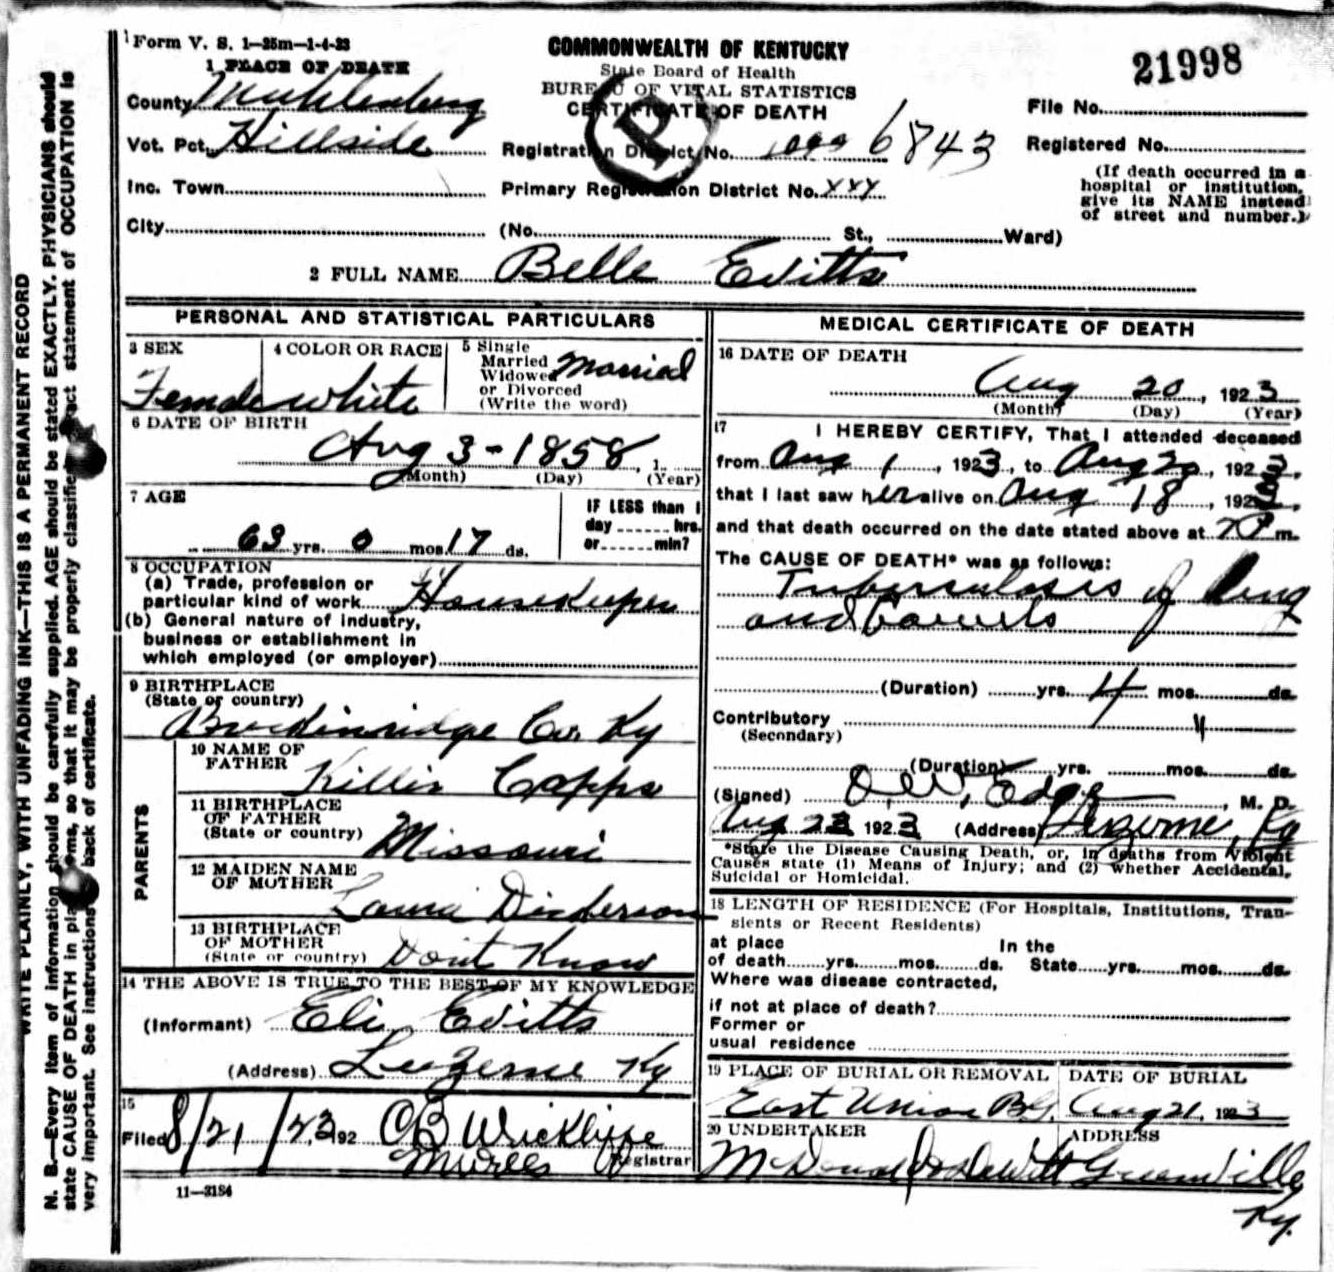 Form V. S. 1—25m—1-4-23
COMMONWEALTH OF KENTUCKY
State Board of Health
BUREAU OF VITAL STATISTICS
CERTIFICATE OF DEATH
21998
1 PLACE OF DEATH
County Muhlenberg
Vot. Pct. Hillside
Inc. Town
City
Registration District No. 6843
Primary Registration District No. xxy
(No. St., Ward)
File No.
Registered No.
(If death occurred in a
hospital or institution,
give its NAME instead
of street and number.)
2 FULL NAME Belle Evitts
PERSONAL AND STATISTICAL PARTICULARS
3 SEX
Female
4 COLOR OR RACE
White
5 Single
Married
Widowed
or Divorced
(Write the word)
Married
6 DATE OF BIRTH
Aug 3 - 1858, 1
(Month) (Day) (Year)
7 AGE
63 yrs. 0 mos. 17 ds.
IF LESS than 1
day hrs.
or min?
8 OCCUPATION
(a) Trade, profession or
particular kind of work Housekeeper
(b) General nature of industry,
business or establishment in
which employed (or employer)
9 BIRTHPLACE
(State or country)
Breckinridge Co. Ky
PARENTS
10 NAME OF
FATHER Killis Capps
11 BIRTHPLACE
OF FATHER
(State or country) Missouri
12 MAIDEN NAME
OF MOTHER Laura Dickerson
13 BIRTHPLACE
OF MOTHER
(State or country) Dont Know
14 THE ABOVE IS TRUE TO THE BEST OF MY KNOWLEDGE
(Informant) Eli Evitts
(Address) Luzerne Ky
15
Filed 8/21/23 192 OB Wickliffe
Registrar
11—3184
MEDICAL CERTIFICATE OF DEATH
16 DATE OF DEATH
Aug 20, 1923
(Month) (Day) (Year)
17 I HEREBY CERTIFY, That I attended deceased
from Aug 1, 1923, to Aug 20, 1923,
that I last saw her alive on Aug 18, 192
and that death occurred on the date stated above at 7 P m.
The CAUSE OF DEATH* was as follows:
Tuberculosis of lung
and bowels
(Duration) yrs. 4 mos. ds.
Contributory
(Secondary)
(Duration) yrs. mos. ds.
(Signed) , M. D.
Aug 23 1923 (Address) Luzerne, Ky
*State the Disease Causing Death, or, in deaths from Violent
Causes state (1) Means of Injury; and (2) whether Accidental,
Suicidal or Homicidal.
18 LENGTH OF RESIDENCE (For Hospitals, Institutions, Tran-
sients or Recent Residents)
at place In the
of death yrs. mos. ds. State yrs. mos. ds.
Where was disease contracted,
if not at place of death?
Former or
usual residence
19 PLACE OF BURIAL OR REMOVAL
East Union BG.
DATE OF BURIAL
Aug 21, 1923
20 UNDERTAKER
McDonald & DeWitt
ADDRESS
Greenville
Ky.
WRITE PLAINLY, WITH UNFADING INK—THIS IS A PERMANENT RECORD
N. B.—Every item of information should be carefully supplied. AGE should be stated EXACTLY. PHYSICIANS should
state CAUSE OF DEATH in plain terms, so that it may be properly classified. Exact statement of OCCUPATION is
very important. See instructions back of certificate.